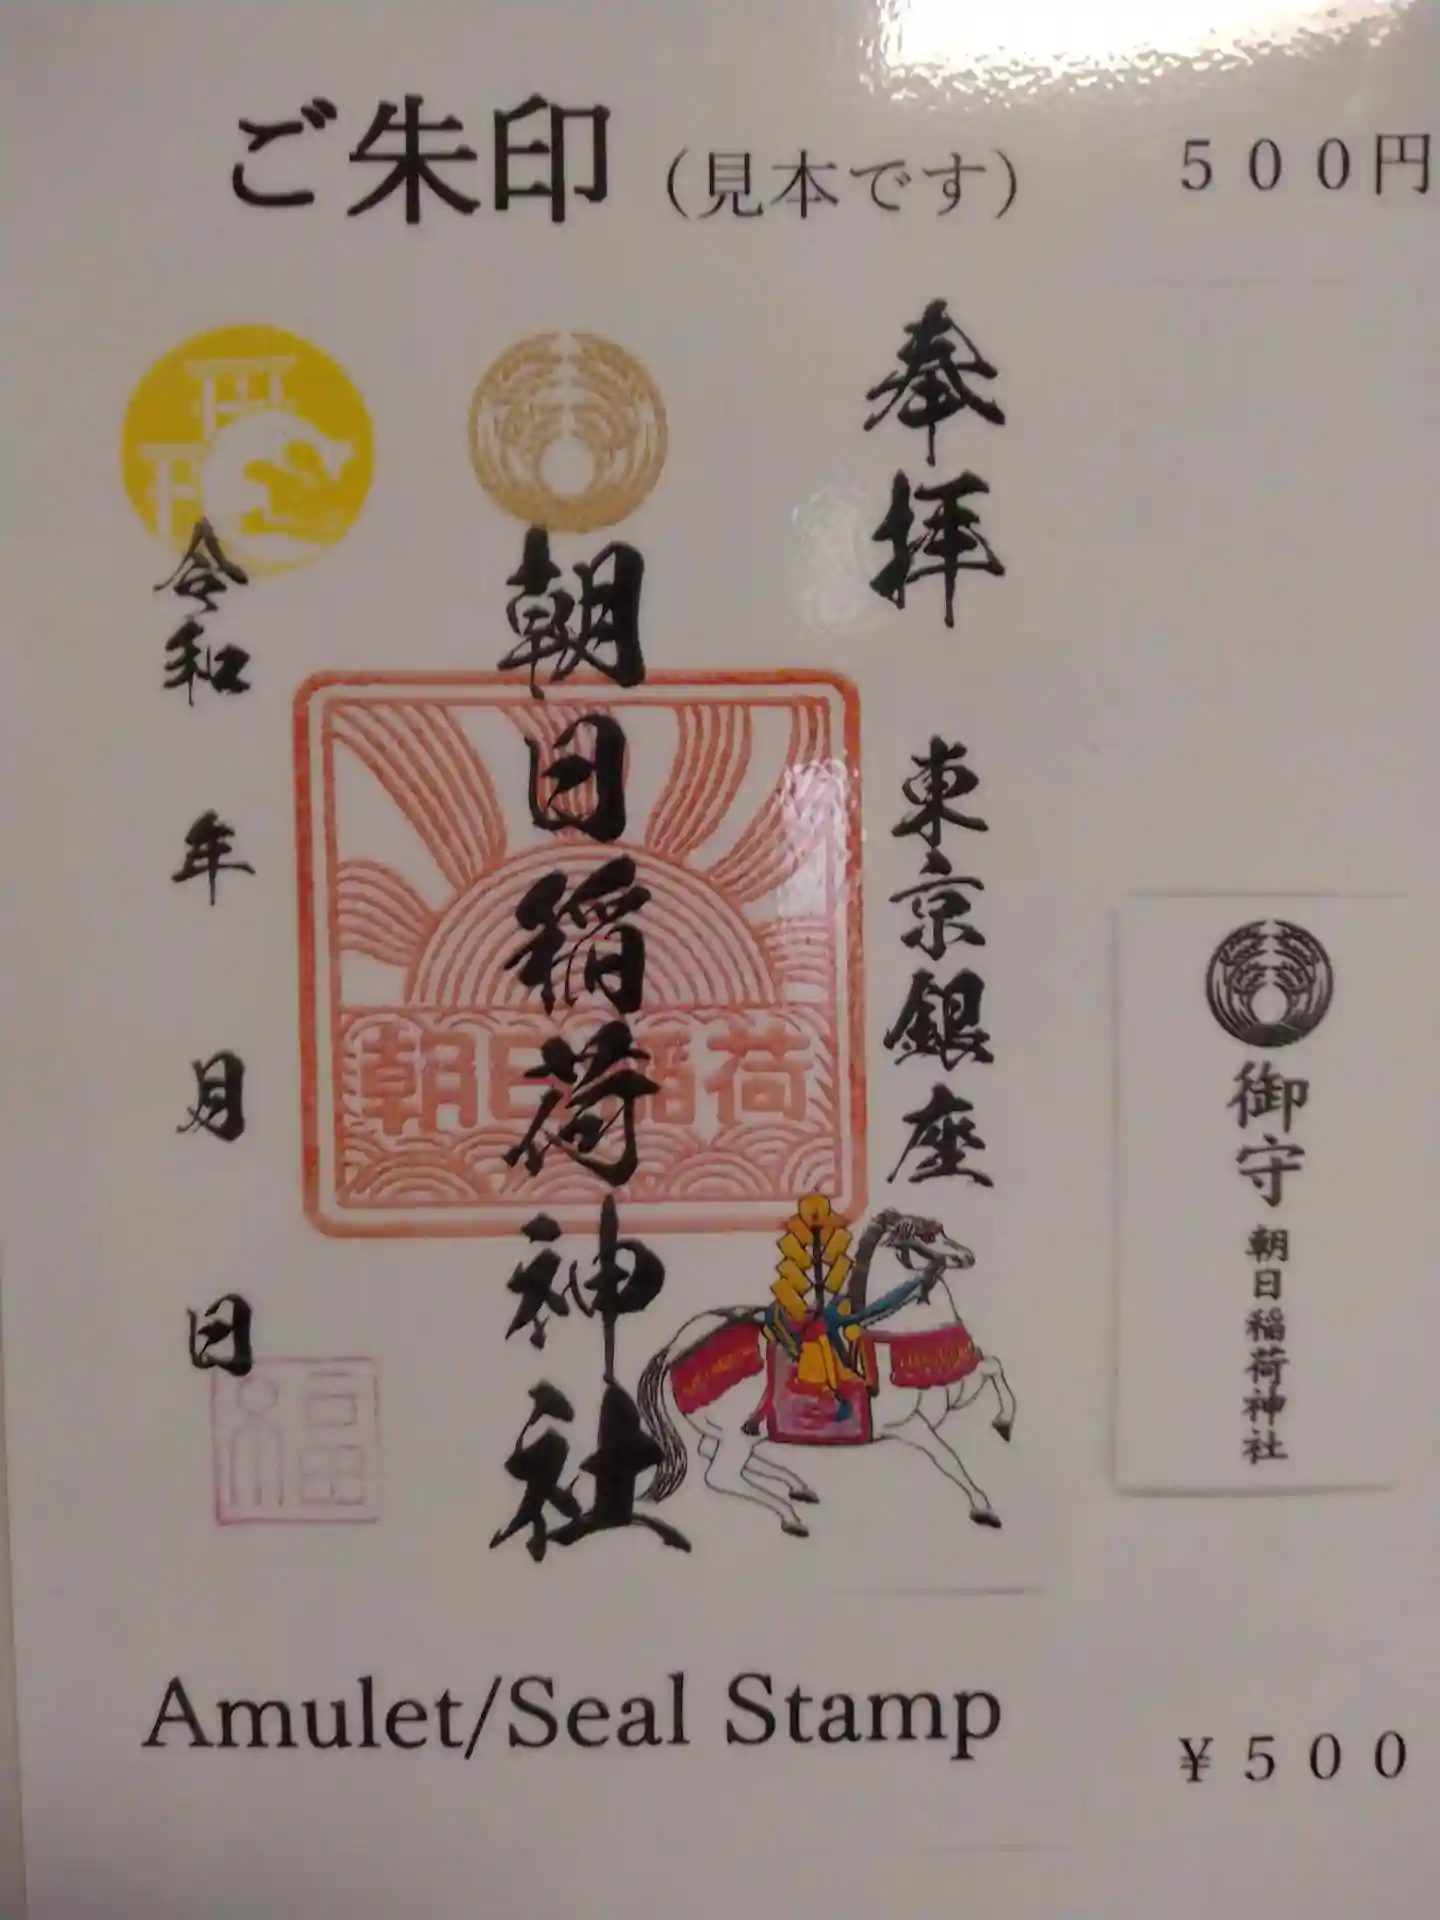 ご朱印（見本です） 500円
奉拝 東京銀座
朝日稲荷神社
令和 年 月 日
朝日稲荷
福
御守
朝日稲荷神社
Amulet/Seal Stamp ¥500